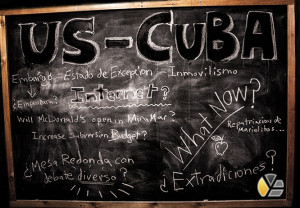 US-CUBA
Embargo - Estado de Excepción - Inmovilismo
¿Empeorará?
Internet?
Will McDonald's open in Miramar?
Increase Subversion Budget?
What Now?
Repatriación de
Marielitos...
¿Mesa Redonda con
debate diverso?
¿Extradiciones?